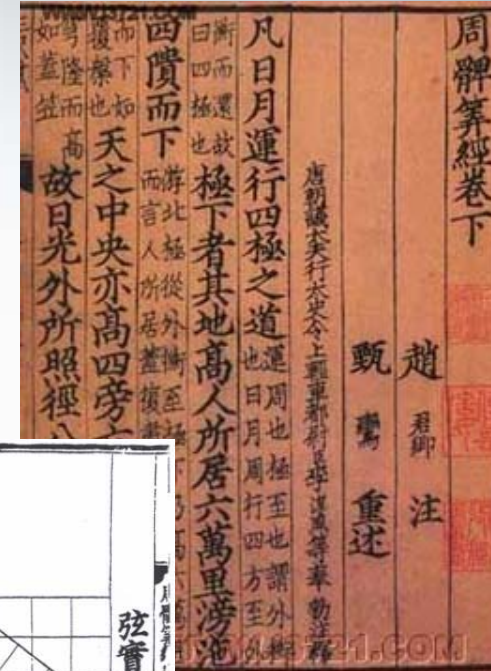 周髀筭經卷下
趙 君卿 注
甄 鸞 重述
唐朝議大夫行太史令上輕車都尉臣李淳風等奉 勑注釋
凡日月運行四極之道
運周也極至也謂外衡
也日月周行四方至外
衡而還故
曰四極也
極下者其地高人所居六萬里滂沲
四隤而下
游北極從外衡至極
而言人所居蓋復
而下如
覆槃也
天之中央亦高四旁
穹隆而高
如蓋笠
故日光外所照徑八
弦實